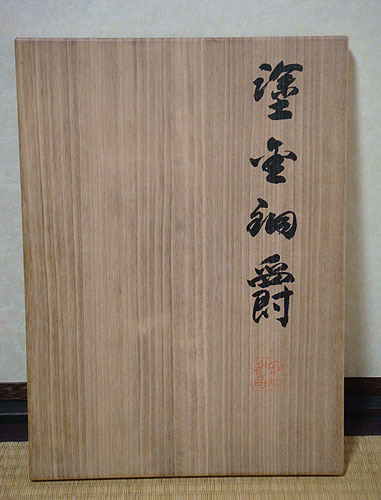 塗金銅爵